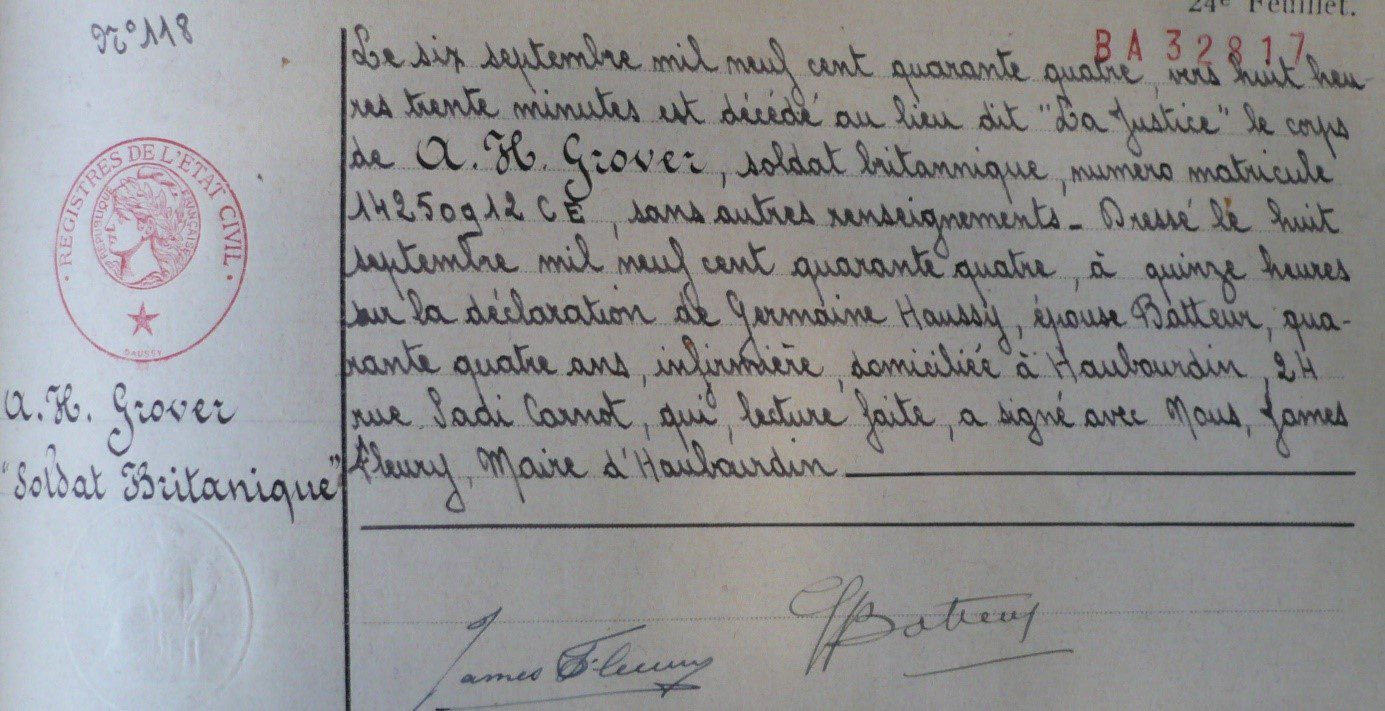 24e Feuillet.
N° 118
BA 32817
Le six septembre mil neuf cent quarante quatre, vers huit heu-
res trente minutes est décédé au lieu dit "La Justice" le corps
de A. H. Grover, soldat britannique, numero matricule
14250912 CE, sans autres renseignements - Dressé le huit
septembre mil neuf cent quarante quatre, à quinze heures
sur la déclaration de Germaine Haussy, épouse Batteur, qua-
rante quatre ans, infirmière, domiciliée à Haubourdin, 24
rue Sadi Carnot, qui, lecture faite, a signé avec Nous, James
Fleury, Maire d'Haubourdin
REGISTRES DE L'ETAT CIVIL
REPUBLIQUE FRANÇAISE
DAUSSY
A. H. Grover
"Soldat Britanique"
James Fleury
G Batteur